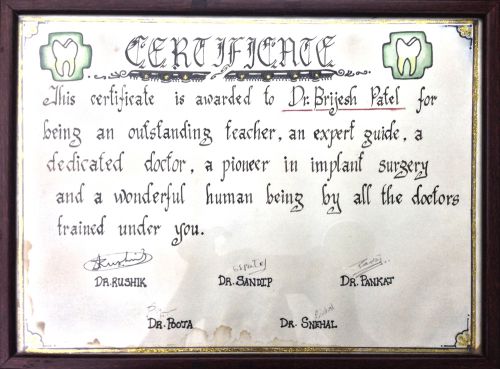 CERTIFICATE
This certificate is awarded to Dr. Brijesh Patel for
being an outstanding teacher, an expert guide, a
dedicated doctor, a pioneer in implant surgery
and a wonderful human being by all the doctors
trained under you.
DR. RUSHIK DR. SANDIP DR. PANKAT
DR. POOTA DR. SNEHAL